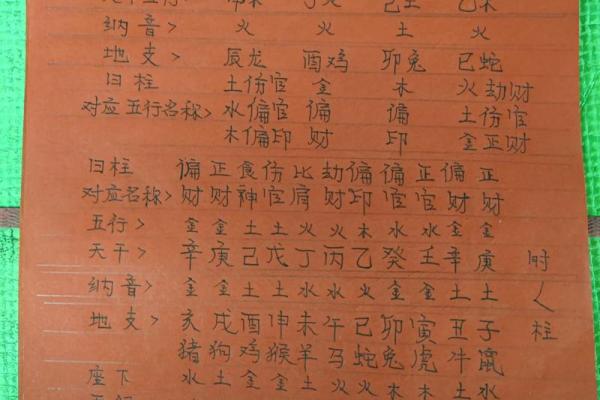 丁火 己土 乙木
纳音> 火 火 土 火
地支> 辰龙 酉鸡 卯兔 巳蛇
日柱 土伤官 金 木 火劫财
对应五行名称> 水偏官 偏 偏 土伤官
木偏印 财 印 金正财
日柱 偏正食伤比劫偏偏正偏正
对应名称> 财财神官肩财印官官财财
五行> 金金土土火火木水水金金
天干> 辛庚己戊丁丙乙癸壬辛庚 时
纳音> 金金土土水水火金金土土 人
地支> 亥戌酉申未午巳卯寅丑子 柱
猪狗鸡猴羊马蛇兔虎牛鼠
座下 水土金金土火火木木土水
五行